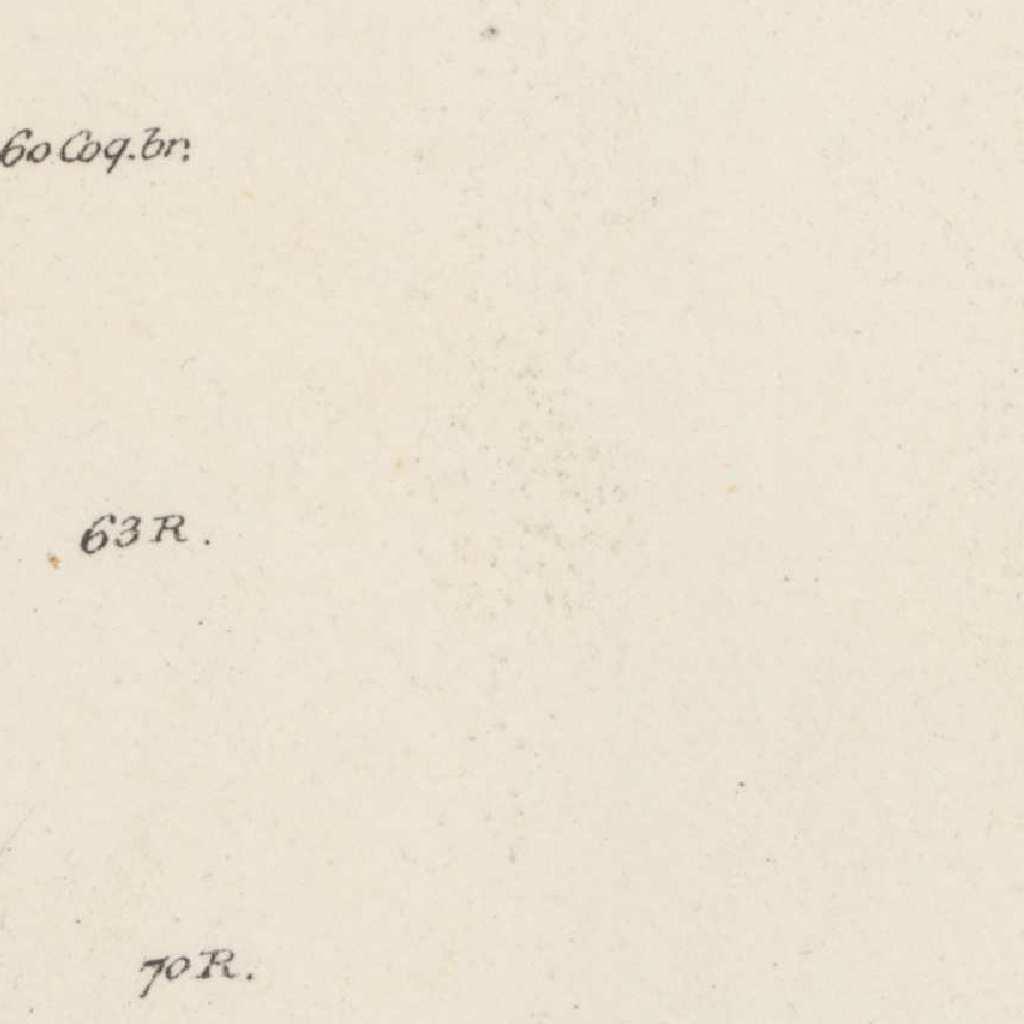 60 Coq.br.
63 R.
70 R.